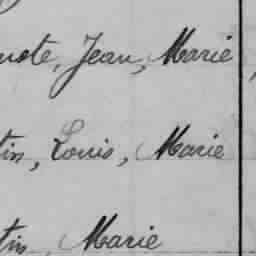 Jean, Marie
tin, Louis, Marie
tin, Marie